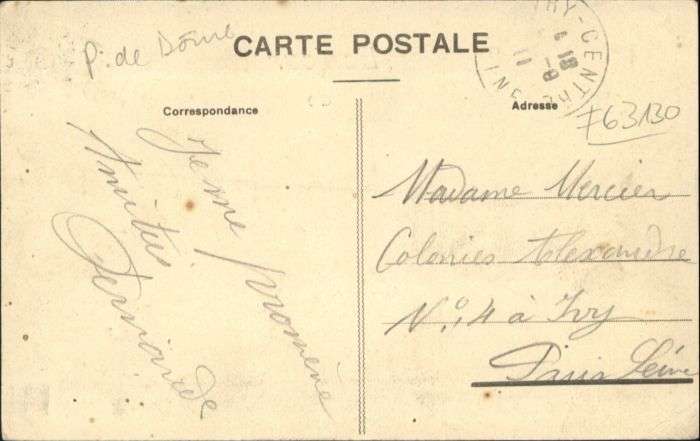 P. de Dôme
CARTE POSTALE
Correspondance
Adresse
RY-CENTRE
18
11 -9
F63130
Je me promène
Amitiés
Fernande
Madame Mercier
Colonies Alexandre
No 4 à Ivry
Paris Seine